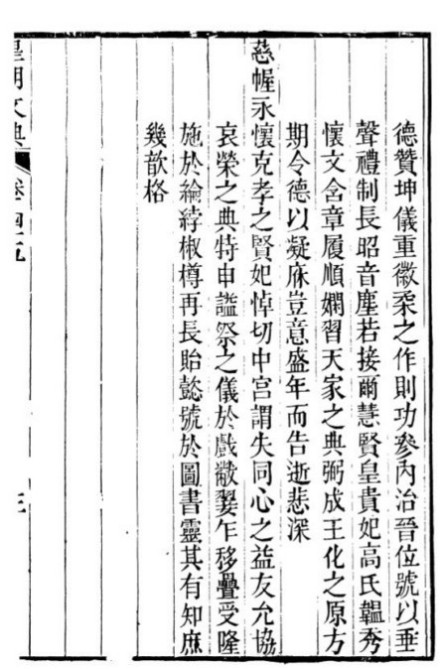 德贊坤儀重徽柔之作則功參內治晉位號以垂
聲禮制長昭音塵若接爾慧賢皇貴妃高氏韞秀
懷文含章履順嫻習天家之典弼成王化之原方
期令德以凝庥豈意盛年而告逝悲深
慈幄永懷克孝之賢妃悼切中宮謂失同心之益友允協
哀榮之典特申諡祭之儀於戲黻翣乍移疊受隆
施於綸綍椒樽再長貽懿號於圖書靈其有知庶
幾歆格
皇朝文典
卷四五
三